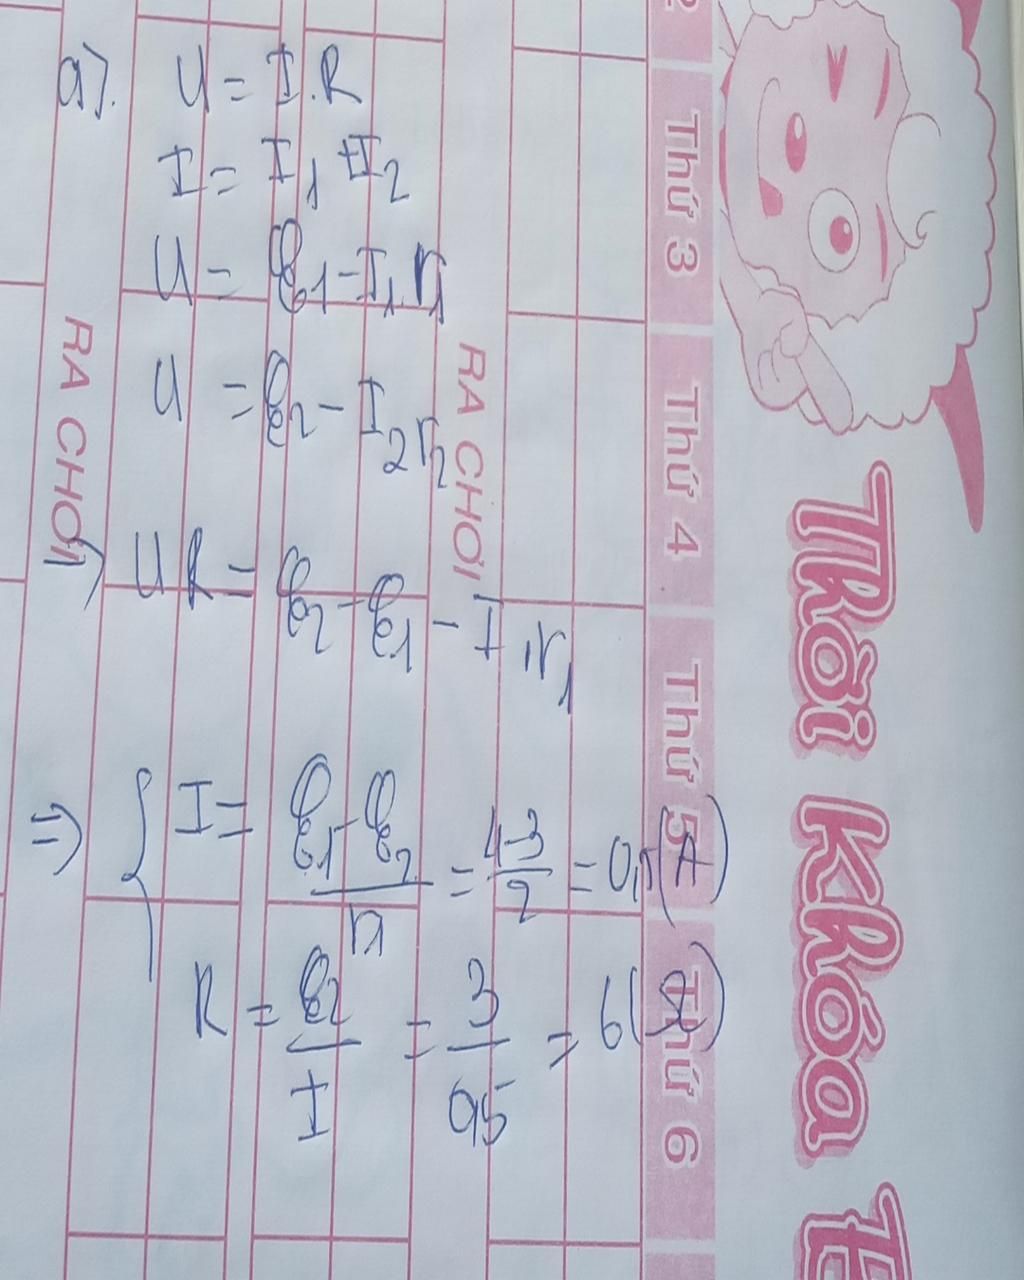 a).
U = I.R
I = I1 + I2
U = ℰ1 - I1.r1
U = ℰ2 - I2r2
UR = ℰ2 - ℰ1 - I1r1
⇒ { I = (ℰ1 - ℰ2)/r1 = (4-3)/2 = 0,5 (A)
R = ℰ2/I = 3/0,5 = 6 (Ω)
RA CHƠI
RA CHƠI
2
Thứ 3
Thứ 4
Thứ 5
Thứ 6
Thời Khóa